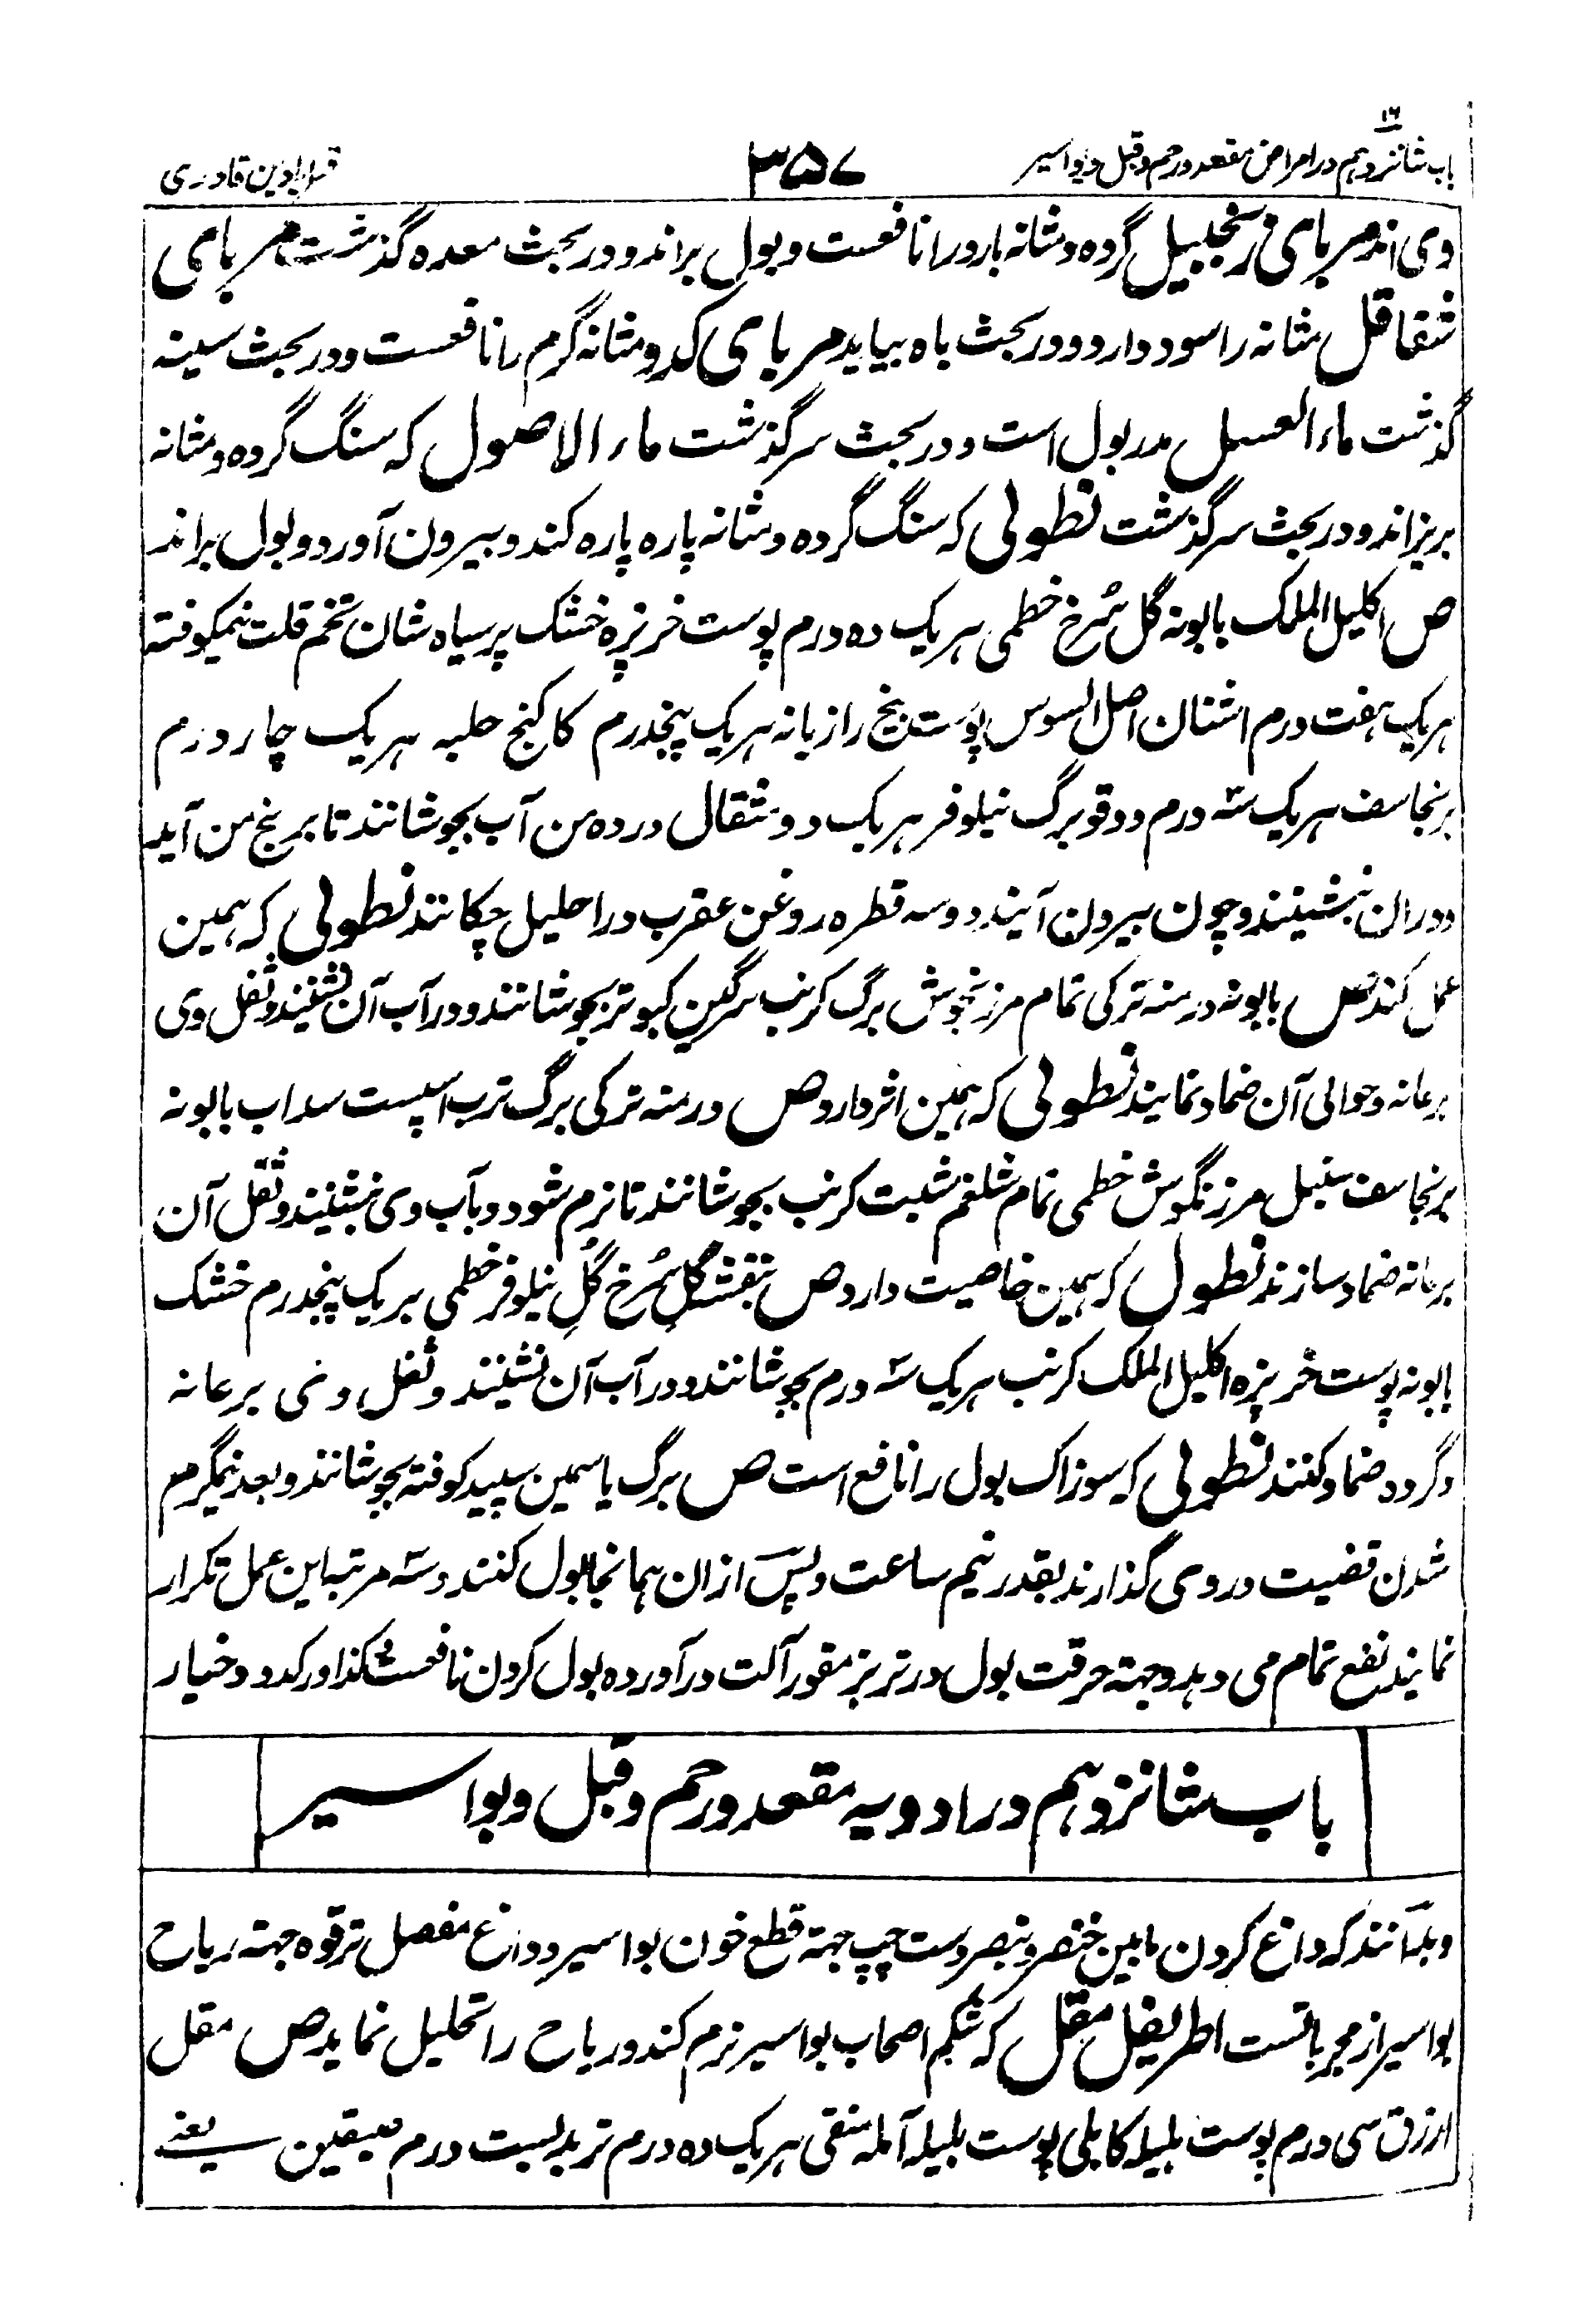 ۱۶
باب شانزدهم در امراض مقعد و رحم و قبل و بواسیر
۳۵۷
قرابادین قادری
وی اند مربای زنجبیل گرده و مثانه بارد را نافعست و بول براند و در بحث معده گذشت مربای
شقاقل مثانه را سود دارد و در بحث باه بیاید مربای کدو مثانه گرم را نافعست و در بحث سینه
گذشت ماء العسل مدر بول است و در بحث سر گذشت ماء الاصول که سنگ گرده و مثانه
بریزاند و در بحث سر گذشت نطولی که سنگ گرده و مثانه پاره پاره کند و بیرون آورد و بول براند
ص اکلیل الملک بابونه گل سرخ خطمی هر یک ده درم پوست خرپزه خشک پرسیاوشان تخم قلت نیمکوفته
هر یک هفت درم اشنان اصل السوس پوست بیخ رازیانه هر یک پنجدرم کاکنج حلبه هر یک چار درم
برنجاسف هر یک سه درم دوقو برگ نیلوفر هر یک دو مثقال در ده من آب بجوشانند تا بر پنج من آید
و دران نشینند و چون بیرون آیند دو سه قطره روغن عقرب در احلیل چکانند نطولی که همین
عمل کند ص بابونه درمنه ترکی نمام مرزنجوش برگ کرنب سرگین کبوتر بجوشانند و در آب آن نشینند و ثفل وی
بر عانه و حوالی آن ضماد نمایند نطولی که همین اثر دارد ص درمنه ترکی برگ ترب اسپست سداب بابونه
برنجاسف سنبل مرزنگوش خطمی نمام شلغم شبت کرنب بجوشانند تا نرم شود و بآب وی نشینند و ثفل آن
بر عانه ضماد سازند نطول که همین خاصیت دارد ص بنفشه گل سرخ گل نیلوفر خطمی هر یک پنجدرم خشک
بابونه پوست خرپزه اکلیل الملک کرنب هر یک سه درم بجوشانند و در آب آن نشینند و ثفل وی بر عانه
و گرده ضماد کنند نطولی که سوزاک بول را نافع است ص برگ یاسمین سپید کوفته بجوشانند و بعد نیمگرم
شدن قضیب در وی گذارند بقدر نیم ساعت و پس ازان همانجا بول کنند و سه مرتبه این عمل تکرار
نمایند نفع تمام می دهد و جهة حرقت بول در تربز مقور آلت در آورده بول کردن نافعست و کذا در کدو و خیار
باب شانزدهم در ادویه مقعد و رحم و قبل و بواسیر
و بدانند که داغ کردن مابین خنصر و بنصر دست چپ جهة قطع خون بواسیر و داغ مفصل ترقوه جهة ریاح
بواسیر از مجرباتست اطریفل مقل که شکم اصحاب بواسیر نرم کند و ریاح را تحلیل نماید ص مقل
ازرق سی درم پوست هلیله کابلی پوست بلیله آمله منقی هر یک ده درم تربد بیست درم سبقین یعنے